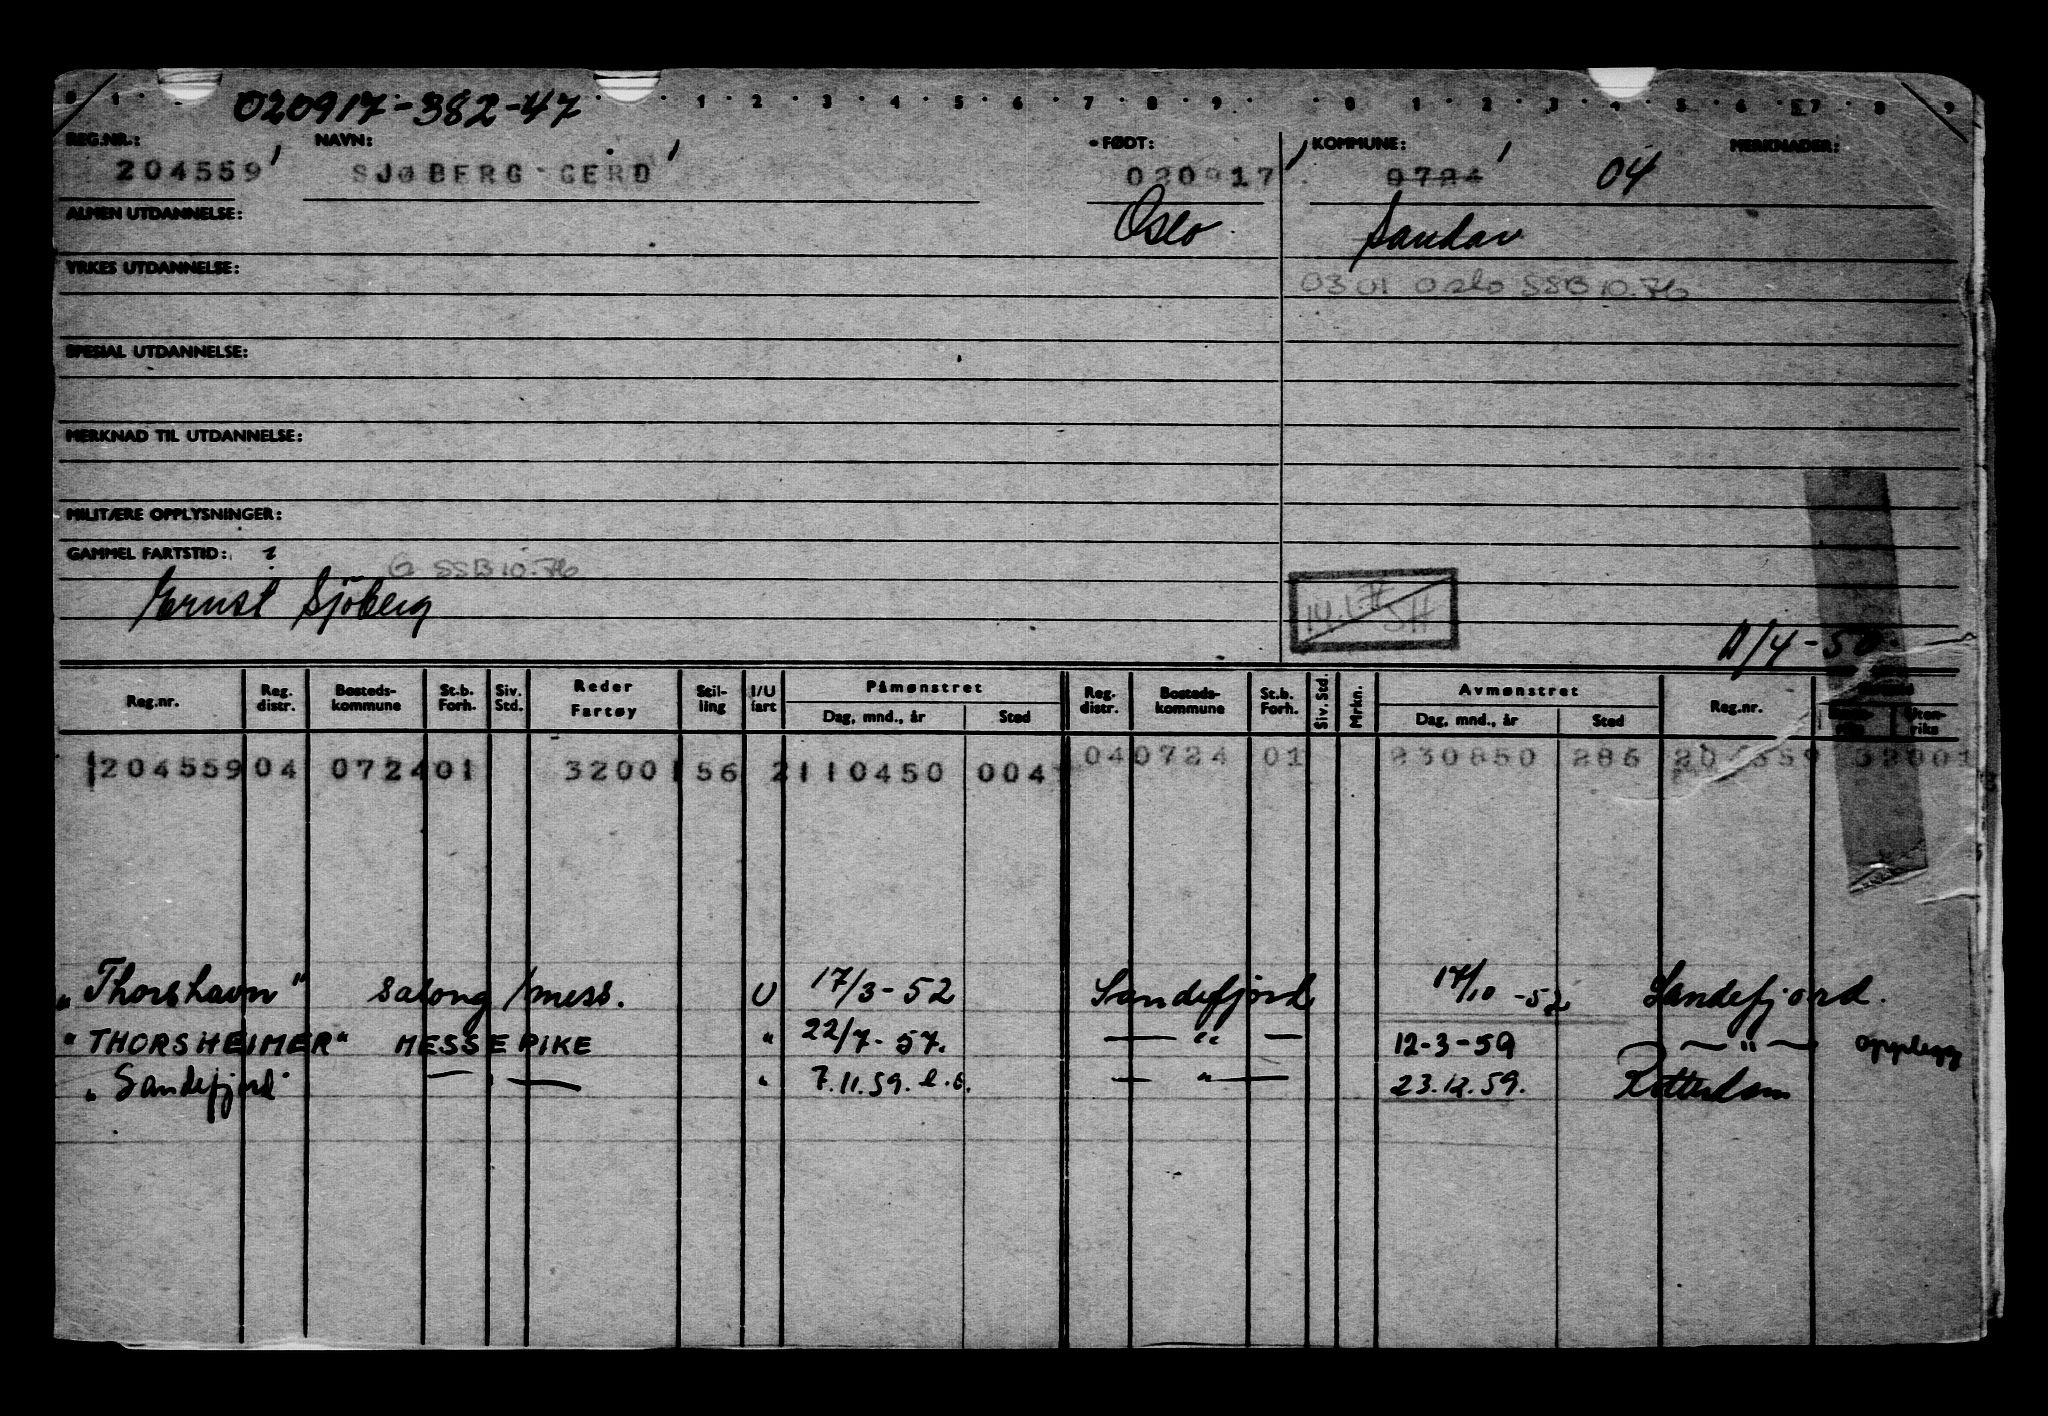 020917-382-47
0 1 . . 1 . 2 . 3 . 4 . 5 . 6 . 7 . 8 . 9 . . 0 1 . 2 . 3 . 4 . 5 . 6 . 7 . 8 . 9
REG.NR.: NAVN: FØDT: KOMMUNE: MERKNADER:
204559 SJØBERG GERD 020917 0724 04
ALMEN UTDANNELSE: Oslo Sandar
YRKES UTDANNELSE:
0301 Oslo SSB 10.76
SPESIAL UTDANNELSE:
MERKNAD TIL UTDANNELSE:
MILITÆRE OPPLYSNINGER:
GAMMEL FARTSTID:
G SSB 10.76
Ernst Sjöberg
11/4-50.
Reg.nr. Reg. distr. Bosteds-kommune St.b. Forh. Siv. Std. Reder Fartøy Stil-ling I/U fart Påmønstret Dag, mnd., år Sted Reg. distr. Bosteds-kommune St.b. Forh. Siv. Std. Mrkn. Avmønstret Dag, mnd., år Sted Reg.nr. Uten-riks
1204559 04 0724 01 32001 56 2 110450 004 04 0724 01 230850 286 204559 32001
"Thorshavn" Salong/mess. U 17/3-52 Sandefjord 17/10-52 Sandefjord.
"THORSHEIMER" MESSEPIKE " 22/7-57. — " — 12-3-59 — " — opplegg
"Sandefjord" — " — " 7.11.59. — " — 23.12.59. Rotterdam